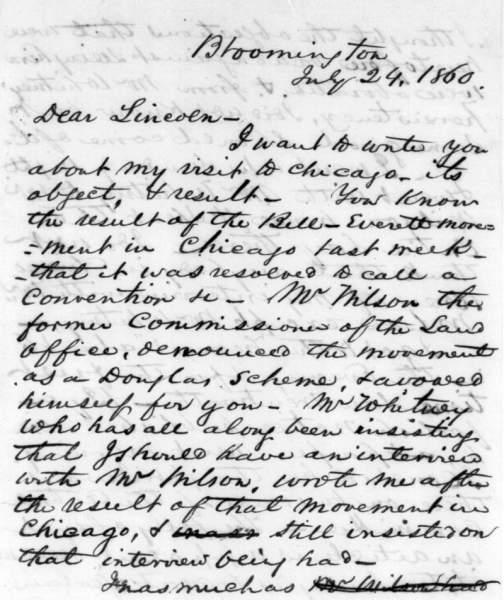 Bloomington
July 24, 1860.
Dear Lincoln—
I want to write you
about my visit to Chicago— its
object, & result— You know
the result of the Bell-Everett move-
-ment in Chicago last week—
-that it was resolved to call a
Convention &c— Mr Wilson the
former Commissioner of the Land
Office, denounced the movement
as a Douglas Scheme, & avowed
himself for you— Mr Whitney
who has all along been insisting
that I should have an interview
with Mr Wilson, wrote me after
the result of that movement in
Chicago, & still insisted on
that interview being had—
Inasmuch as Mr Wilson had